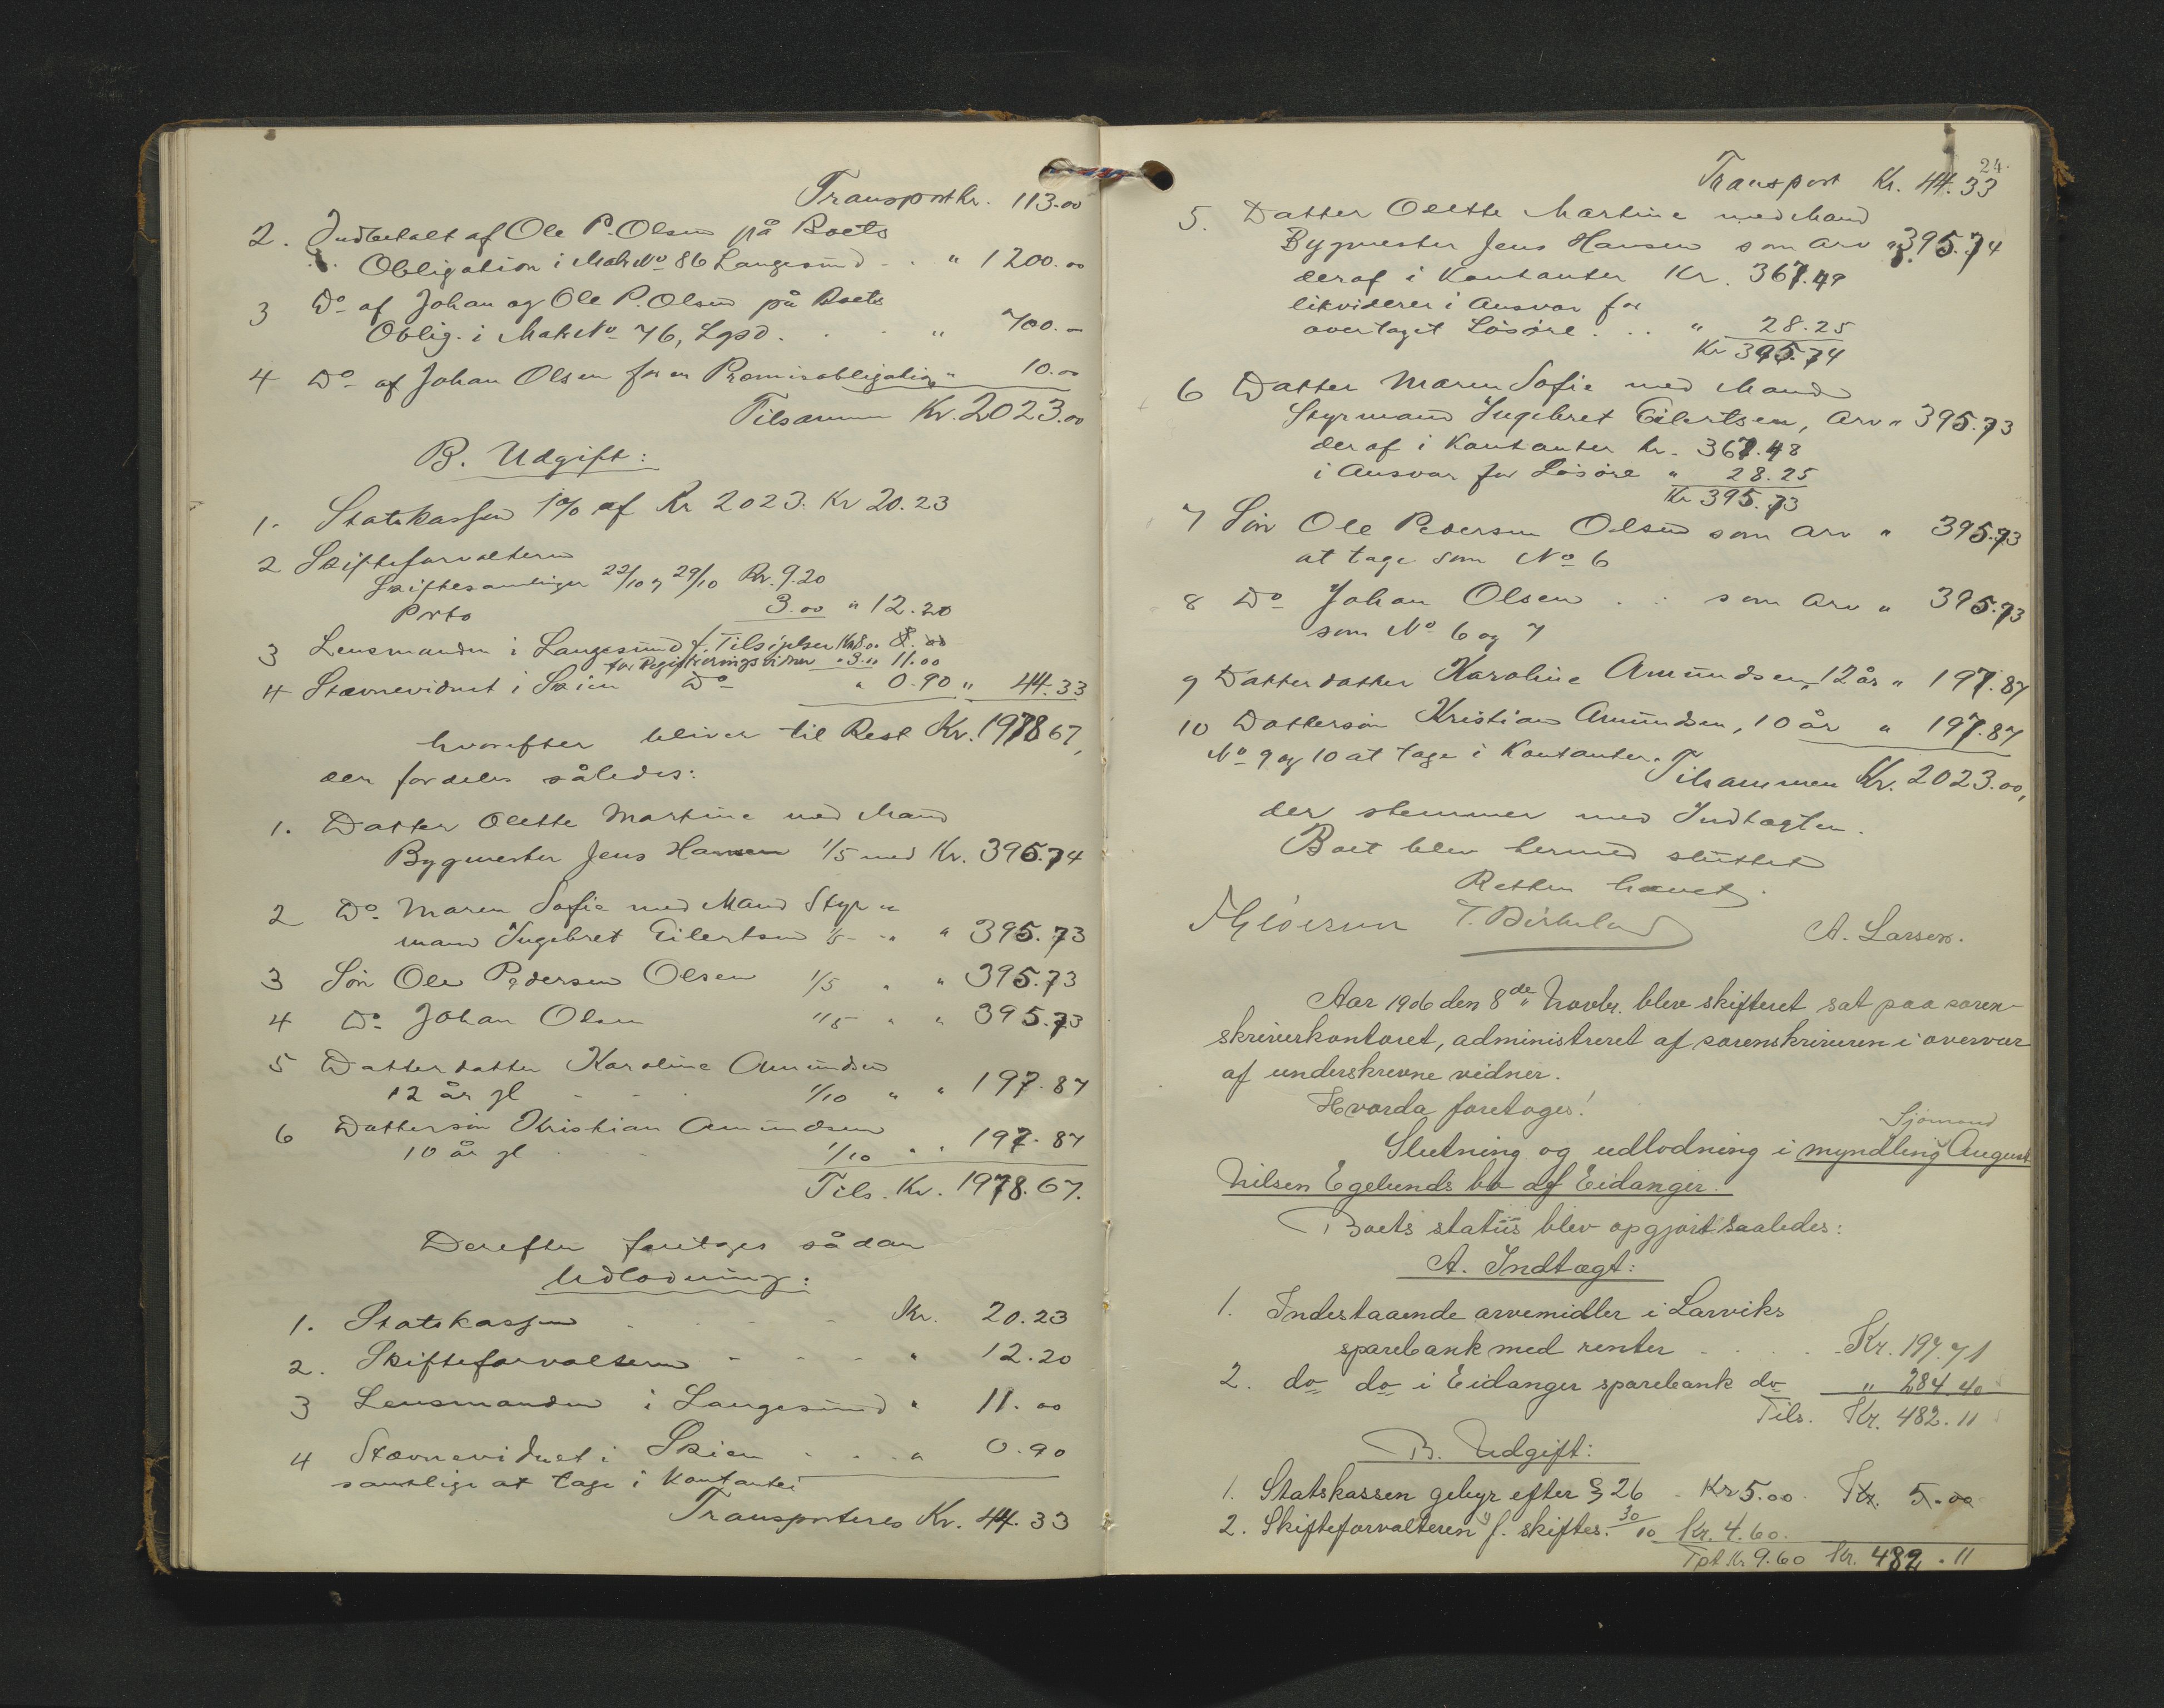 Transport Kr. 113.00
2. Indbetalt af Ole P. Olsen på Boets
Obligation i Matr No 86 Langesund - . " 1200.00
3 Do af Johan og Ole P. Olsen på Boets
Oblig. i Matr No 76, Lgsd. . . " 700.-
4 Do af Johan Olsen for en Promisobligation " 10.00
Tilsammen Kr. 2023.00
B. Udgift:
1. Statskassen 1% af Kr 2023. Kr 20.23
2 Skifteforvalteren
Skiftesamlinger 22/10 og 29/10 Kr. 9.20
Porto 3.00 " 12.20
3 Lensmanden i Langesund f. Tilsigelser Kr 8.00 8.00
for Registreringsvidner " 3.00 11.00
4 Stævnevidnet i Skien Do " 0.90 " 44.33
hvorefter bliver til Rest Kr. 1978 67,
der fordeles således:
1. Datter Olette Martine med Mand
Bygmester Jens Hansen 1/5 med Kr. 395.74
2 Do Maren Sofie med Mand Styr=
mand Ingebret Eilertsen 1/5 - " " 395.73
3 Søn Ole Pedersen Olsen 1/5 " " 395.73
4 Do Johan Olsen 1/5 " " 395.73
5 Datterdatter Karoline Amundsen
12 år gl - - . 1/10 " " 197.87
6 Dattersøn Kristian Amundsen
10 år gl . . 1/10 " " 197.87
Tils. Kr. 1978.67.
Derefter foretages sådan
Udlodning:
1. Statskassen . - - - Kr. 20.23
2. Skifteforvalteren - - - " 12.20
3 Lensmanden i Langesund " 11.00
4 Stævnevidnet i Skien . . " 0.90
samtlige at tage i Kontanter
Transporteres Kr. 44.33
24.
Transport Kr. 44.33
5. Datter Olette Martine med Mand
Bygmester Jens Hansen som arv " 395.74
deraf i Kontanter Kr. 367.49
likviderer i Ansvar for
overtaget Løsøre . . . " 28.25
Kr 395.74
6 Datter Maren Sofie med Mand
Styrmand Ingebret Eilertsen, Arv " 395.73
deraf i Kontanter Kr. 367.48
i Ansvar for Løsøre " 28.25
Kr 395.73
7 Søn Ole Pedersen Olsen som Arv " 395.73
at tage som No 6
8 Do Johan Olsen . . som Arv " 395.73
som No 6 og 7
9 Datterdatter Karoline Amundsen, 12 år " 197.87
10 Dattersøn Kristian Amundsen, 10 år " 197.87
No 9 og 10 at tage i Kontanter.
Tilsammen Kr. 2023.00,
der stemmer med Indtægten.
Boet blev hermed sluttet
Retten hævet.
T. Birkeland A. Larsen.
Aar 1906 den 8de Novbr. blev skifteret sat paa soren-
skriverkontoret, administreret af sorenskriveren i overvær
af underskrevne vidner.
Hvorda foretoges:
Sjømand
Slutning og udlodning i myndling August
Nilsen Egelunds bo af Eidanger.
Boets status blev opgjort saaledes:
A. Indtægt:
1. Indestaaende arvemidler i Larviks
sparebank med renter - . . . Kr. 197.71
2. do do i Eidanger sparebank do " 284.40
Tils. Kr. 482.11
B. Udgift:
1. Statskassen gebyr efter § 26 - Kr 5.00. Kr. 5.00
2. Skifteforvalteren f. skiftes. 30/10 Kr. 4.60.
Tpt Kr 9.60 Kr. 482.11